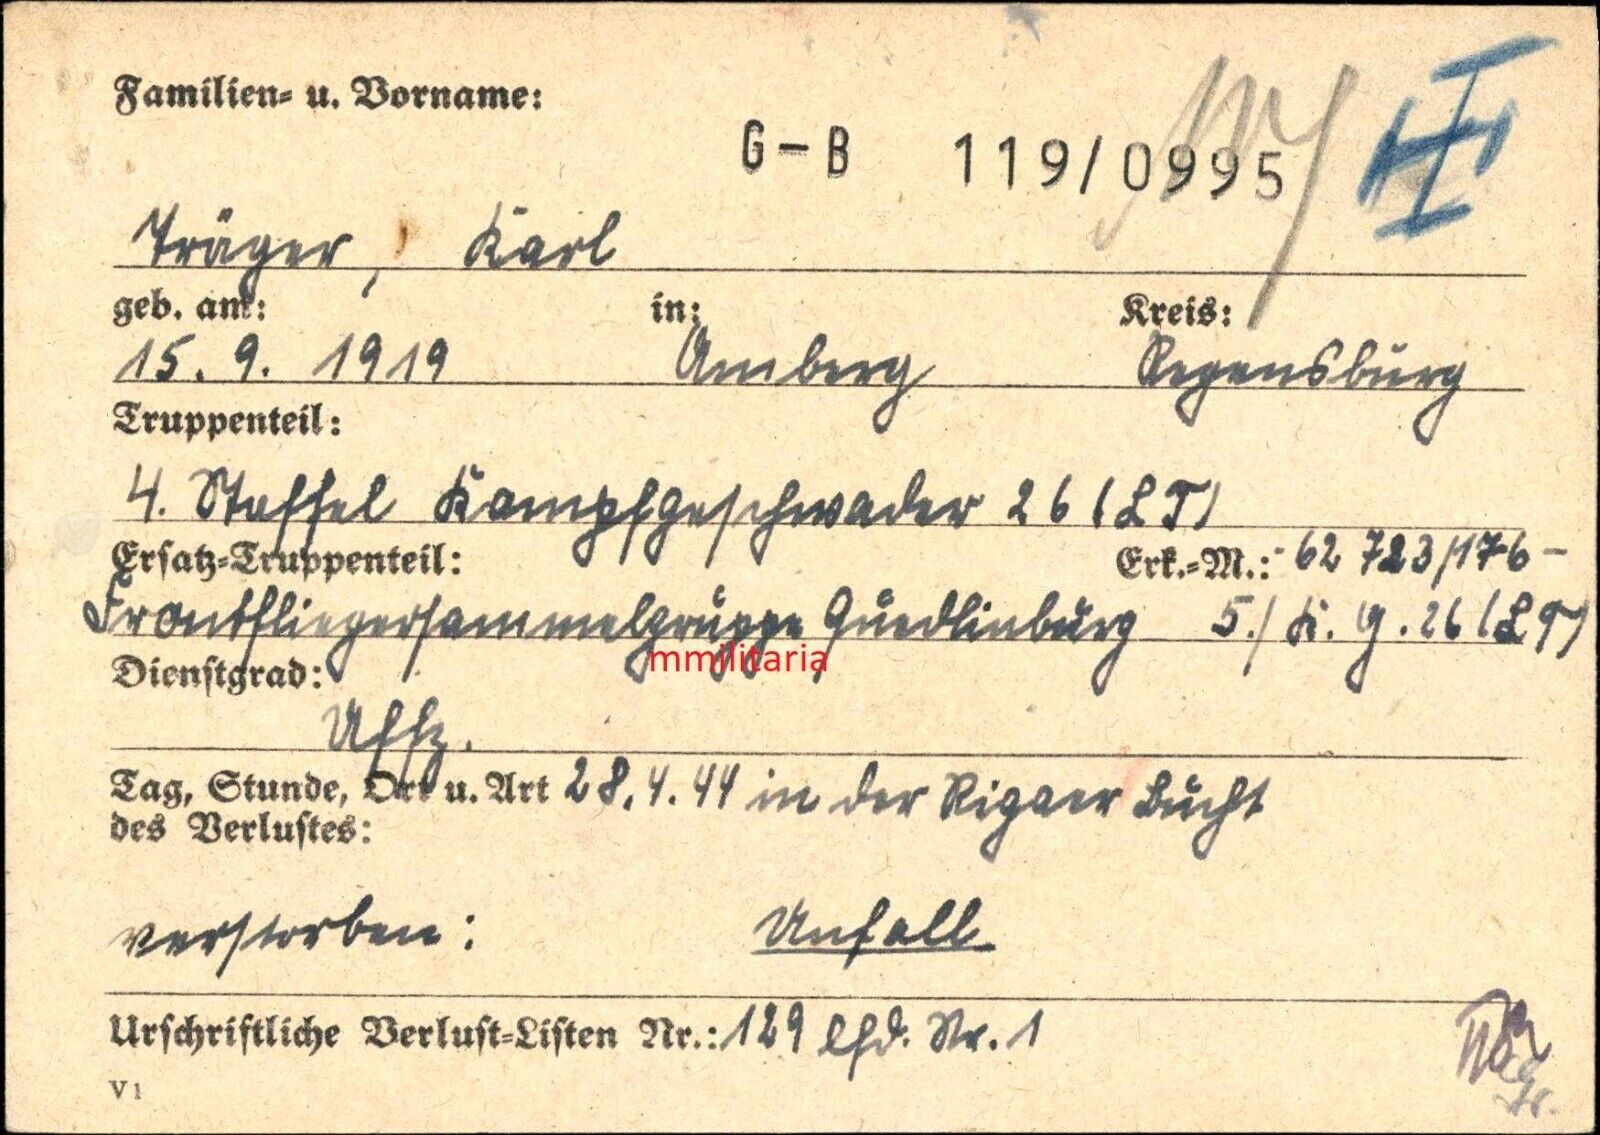 Familien- u. Vorname:
G-B 119/0995
Träger, Karl
geb. am: in: Kreis:
15. 9. 1919 Amberg Regensburg
Truppenteil:
4. Staffel Kampfgeschwader 26 (LT)
Ersatz-Truppenteil: Erk.-M.: 62 723/176-
Frontfliegersammelgruppe Quedlinburg 5./ K. G. 26 (LT)
mmilitaria
Dienstgrad:
Uffz.
Tag, Stunde, Ort u. Art 28.4.44 in der Rigaer Bucht
des Verlustes:
verstorben: Unfall
Urschriftliche Verlust-Listen Nr.: 129 lfd. Nr. 1
V 1